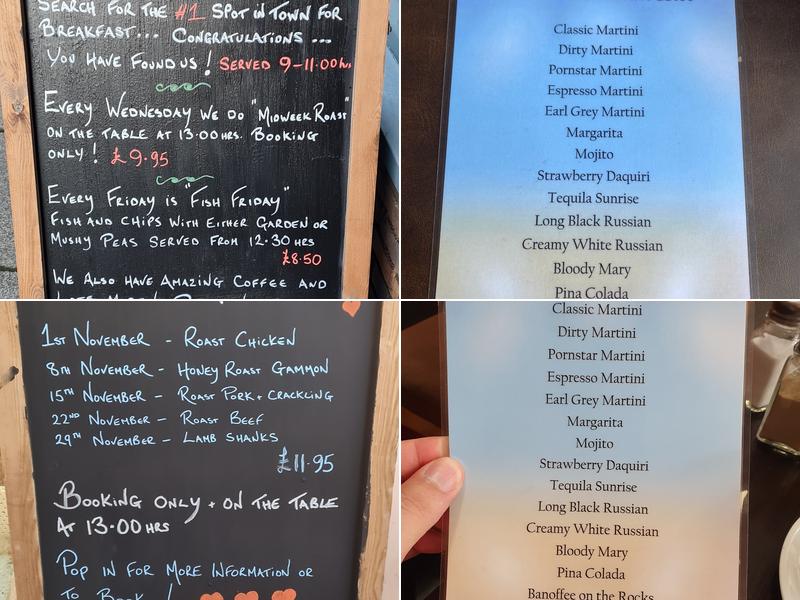 SEARCH FOR THE #1 SPOT IN TOWN FOR
BREAKFAST... CONGRATULATIONS ...
YOU HAVE FOUND US! SERVED 9-11.00hrs
EVERY WEDNESDAY WE DO "MIDWEEK ROAST"
ON THE TABLE AT 13.00HRS. BOOKING
ONLY! £9.95
EVERY FRIDAY IS "FISH FRIDAY"
FISH AND CHIPS WITH EITHER GARDEN OR
MUSHY PEAS SERVED FROM 12.30 HRS
£8.50
WE ALSO HAVE AMAZING COFFEE AND
Classic Martini
Dirty Martini
Pornstar Martini
Espresso Martini
Earl Grey Martini
Margarita
Mojito
Strawberry Daquiri
Tequila Sunrise
Long Black Russian
Creamy White Russian
Bloody Mary
Pina Colada
1ST NOVEMBER - ROAST CHICKEN
8TH NOVEMBER - HONEY ROAST GAMMON
15TH NOVEMBER - ROAST PORK + CRACKLING
22ND NOVEMBER - ROAST BEEF
29TH NOVEMBER - LAMB SHANKS
£11.95
BOOKING ONLY + ON THE TABLE
AT 13.00 HRS
POP IN FOR MORE INFORMATION OR
TO BOOK!
Classic Martini
Dirty Martini
Pornstar Martini
Espresso Martini
Earl Grey Martini
Margarita
Mojito
Strawberry Daquiri
Tequila Sunrise
Long Black Russian
Creamy White Russian
Bloody Mary
Pina Colada
Banoffee on the Rocks